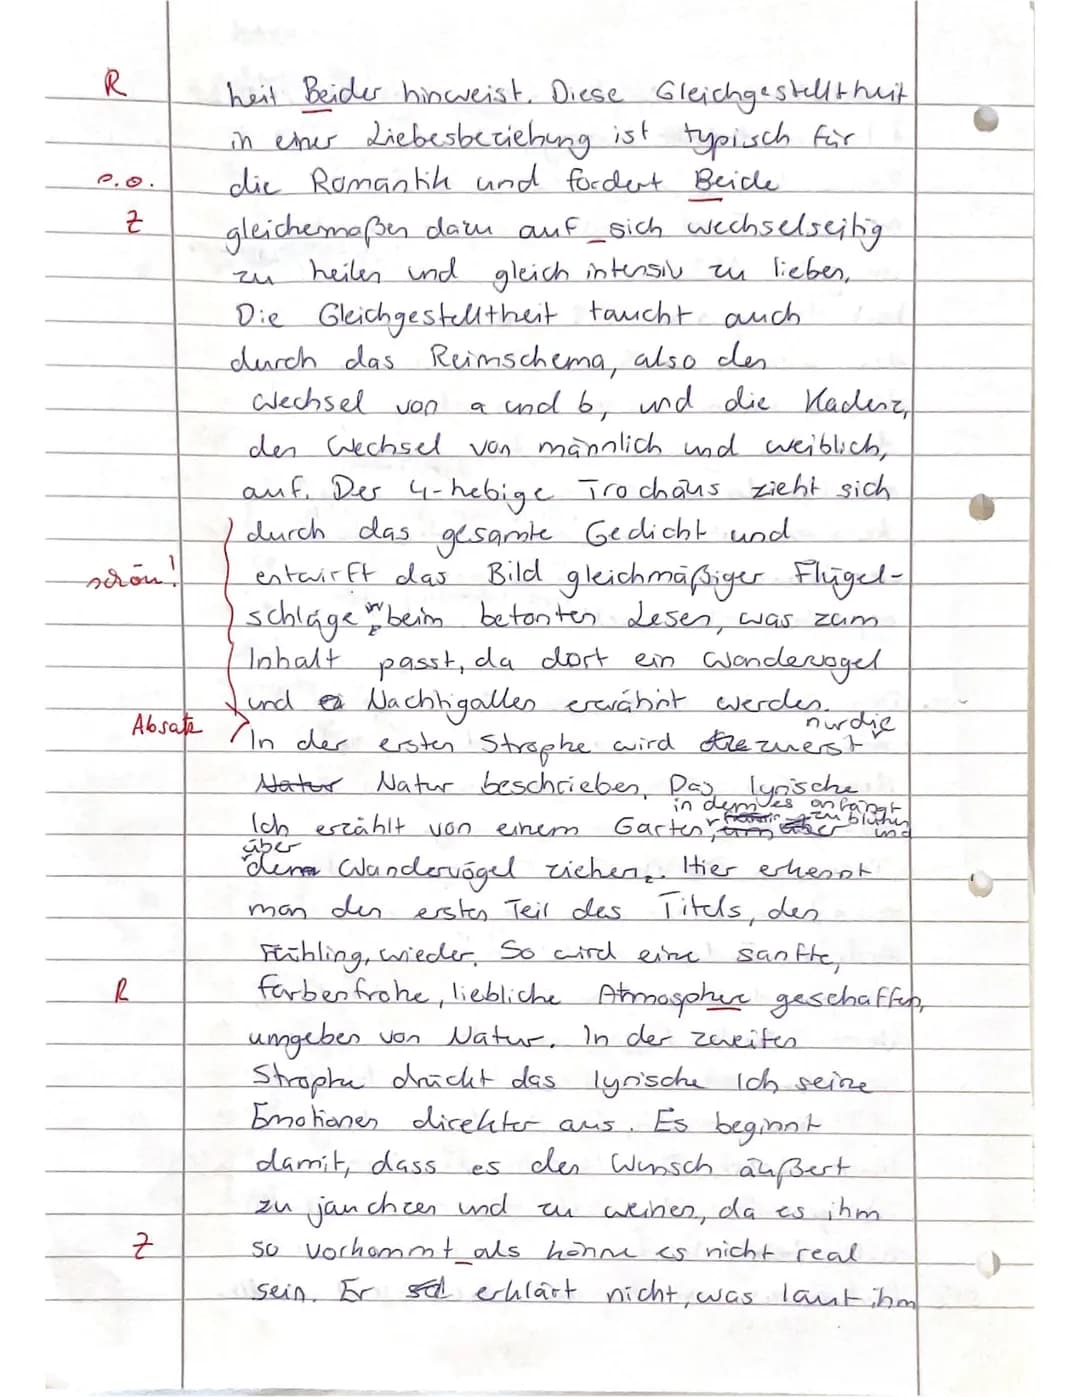 R heit Beider hinweist. Diese Gleichgestelltheit
in einer Liebesbeziehung ist typisch für
s.o. die Romantik und fordert Beide
Z gleichermaßen dazu auf sich wechselseitig
zu heilen und gleich intensiv zu lieben.
Die Gleichgestelltheit taucht auch
durch das Reimschema, also den
Wechsel von a und b, und die Kadenz,
den Wechsel von männlich und weiblich,
auf. Der 4-hebige Trochäus zieht sich
durch das gesamte Gedicht und
schön! entwirft das Bild gleichmäßiger Flügel-
schläge beim betonten Lesen, was zum
Inhalt passt, da dort ein Wandervogel
und Nachtigallen erwähnt werden.
nur die
Absatz In der ersten Strophe wird zuerst
Natur Natur beschrieben. Das lyrische
in dem es anfängt
Ich erzählt von einem Garten, zu blühen und
über
den Wandervögel ziehen. Hier erkennt
man den ersten Teil des Titels, den
Frühling, wieder. So wird eine sanfte,
R farbenfrohe, liebliche Atmosphere geschaffen,
umgeben von Natur. In der zweiten
Strophe drückt das lyrische Ich seine
Emotionen direkter aus. Es beginnt
damit, dass es den Wunsch äußert
zu jauchzen und zu weinen, da es ihm
Z so vorkommt als könne es nicht real
sein. Er erklärt nicht, was laut ihm